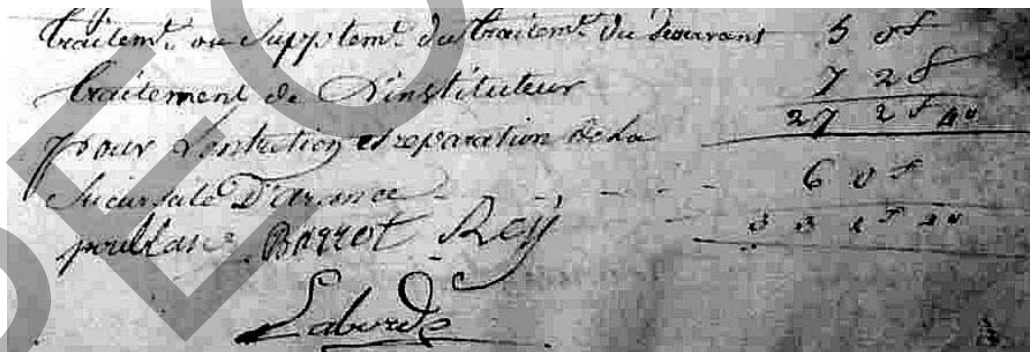 traitemt ou Supplemt du traitemt du desservant 5 0 f
traitement de L'instituteur 7 2 f
27 2 f 40
pour L'entretien et reparation de la
Succursale D'arance - - - - 6 0 f
33 2 f 40
Barrot Rey
Laborde